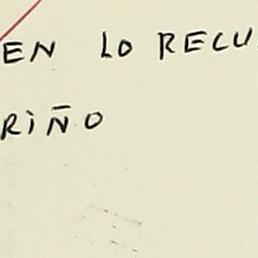 EN LO RECU
RIÑO